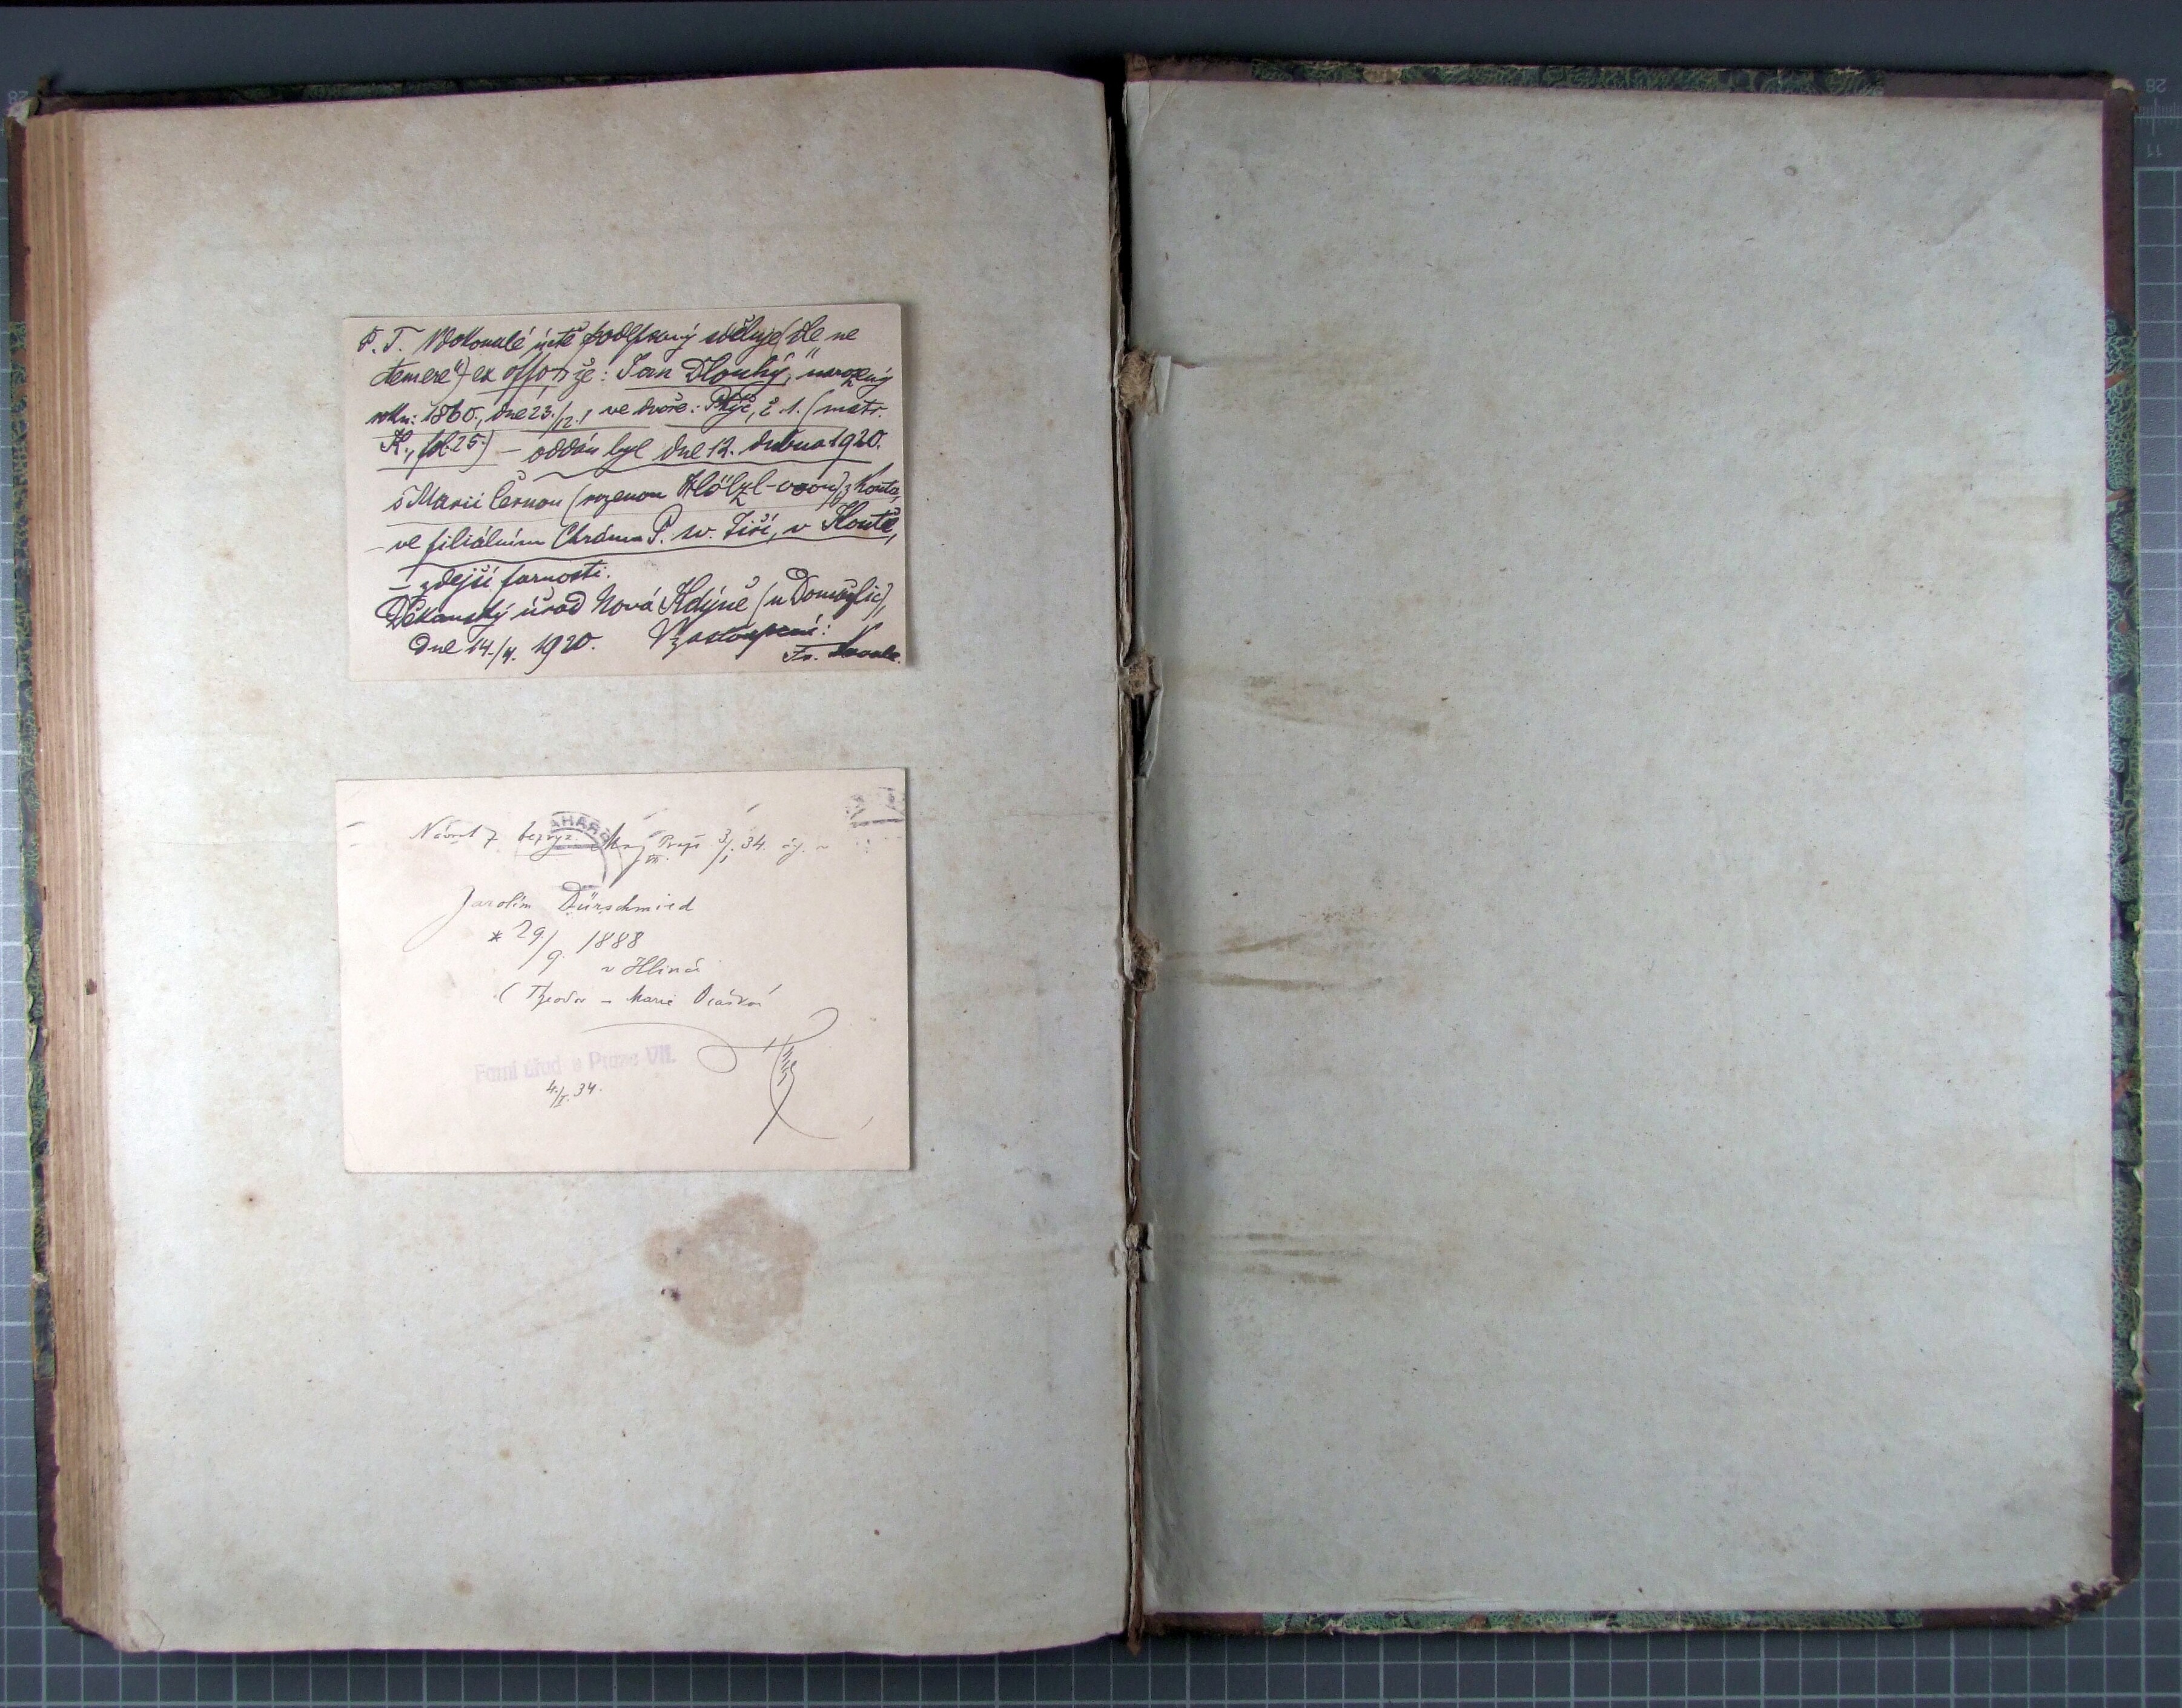 P. T. Dokonalé úctě podepsaný sděluje („Ne
temere“) ex offo, že: Jan Dlouhý, narozený
roku: 1860., dne 23./12., ve dvoře: č 1. (matr.
K., fol. 25.) – oddán byl dne 12. dubna 1920.
s Marií Černou (rozenou Hölzl-ovou), z Kouta,
– ve filiálním Chrámu P. sv. Jiří, v Koutě,
– zdejší farnosti.
Děkanský úřad Nová Kdýně (u Domažlic),
dne 14./4. 1920. V zastoupení:
Fr.
PRAHA
Návrat z bezvyz. Praze 3/1. 34.
VII.
Jarolím Dürschmied
* 29/9. 1888
v Hliná
(Theodor – Marie
Farní úřad v Praze VII.
4./I. 34.